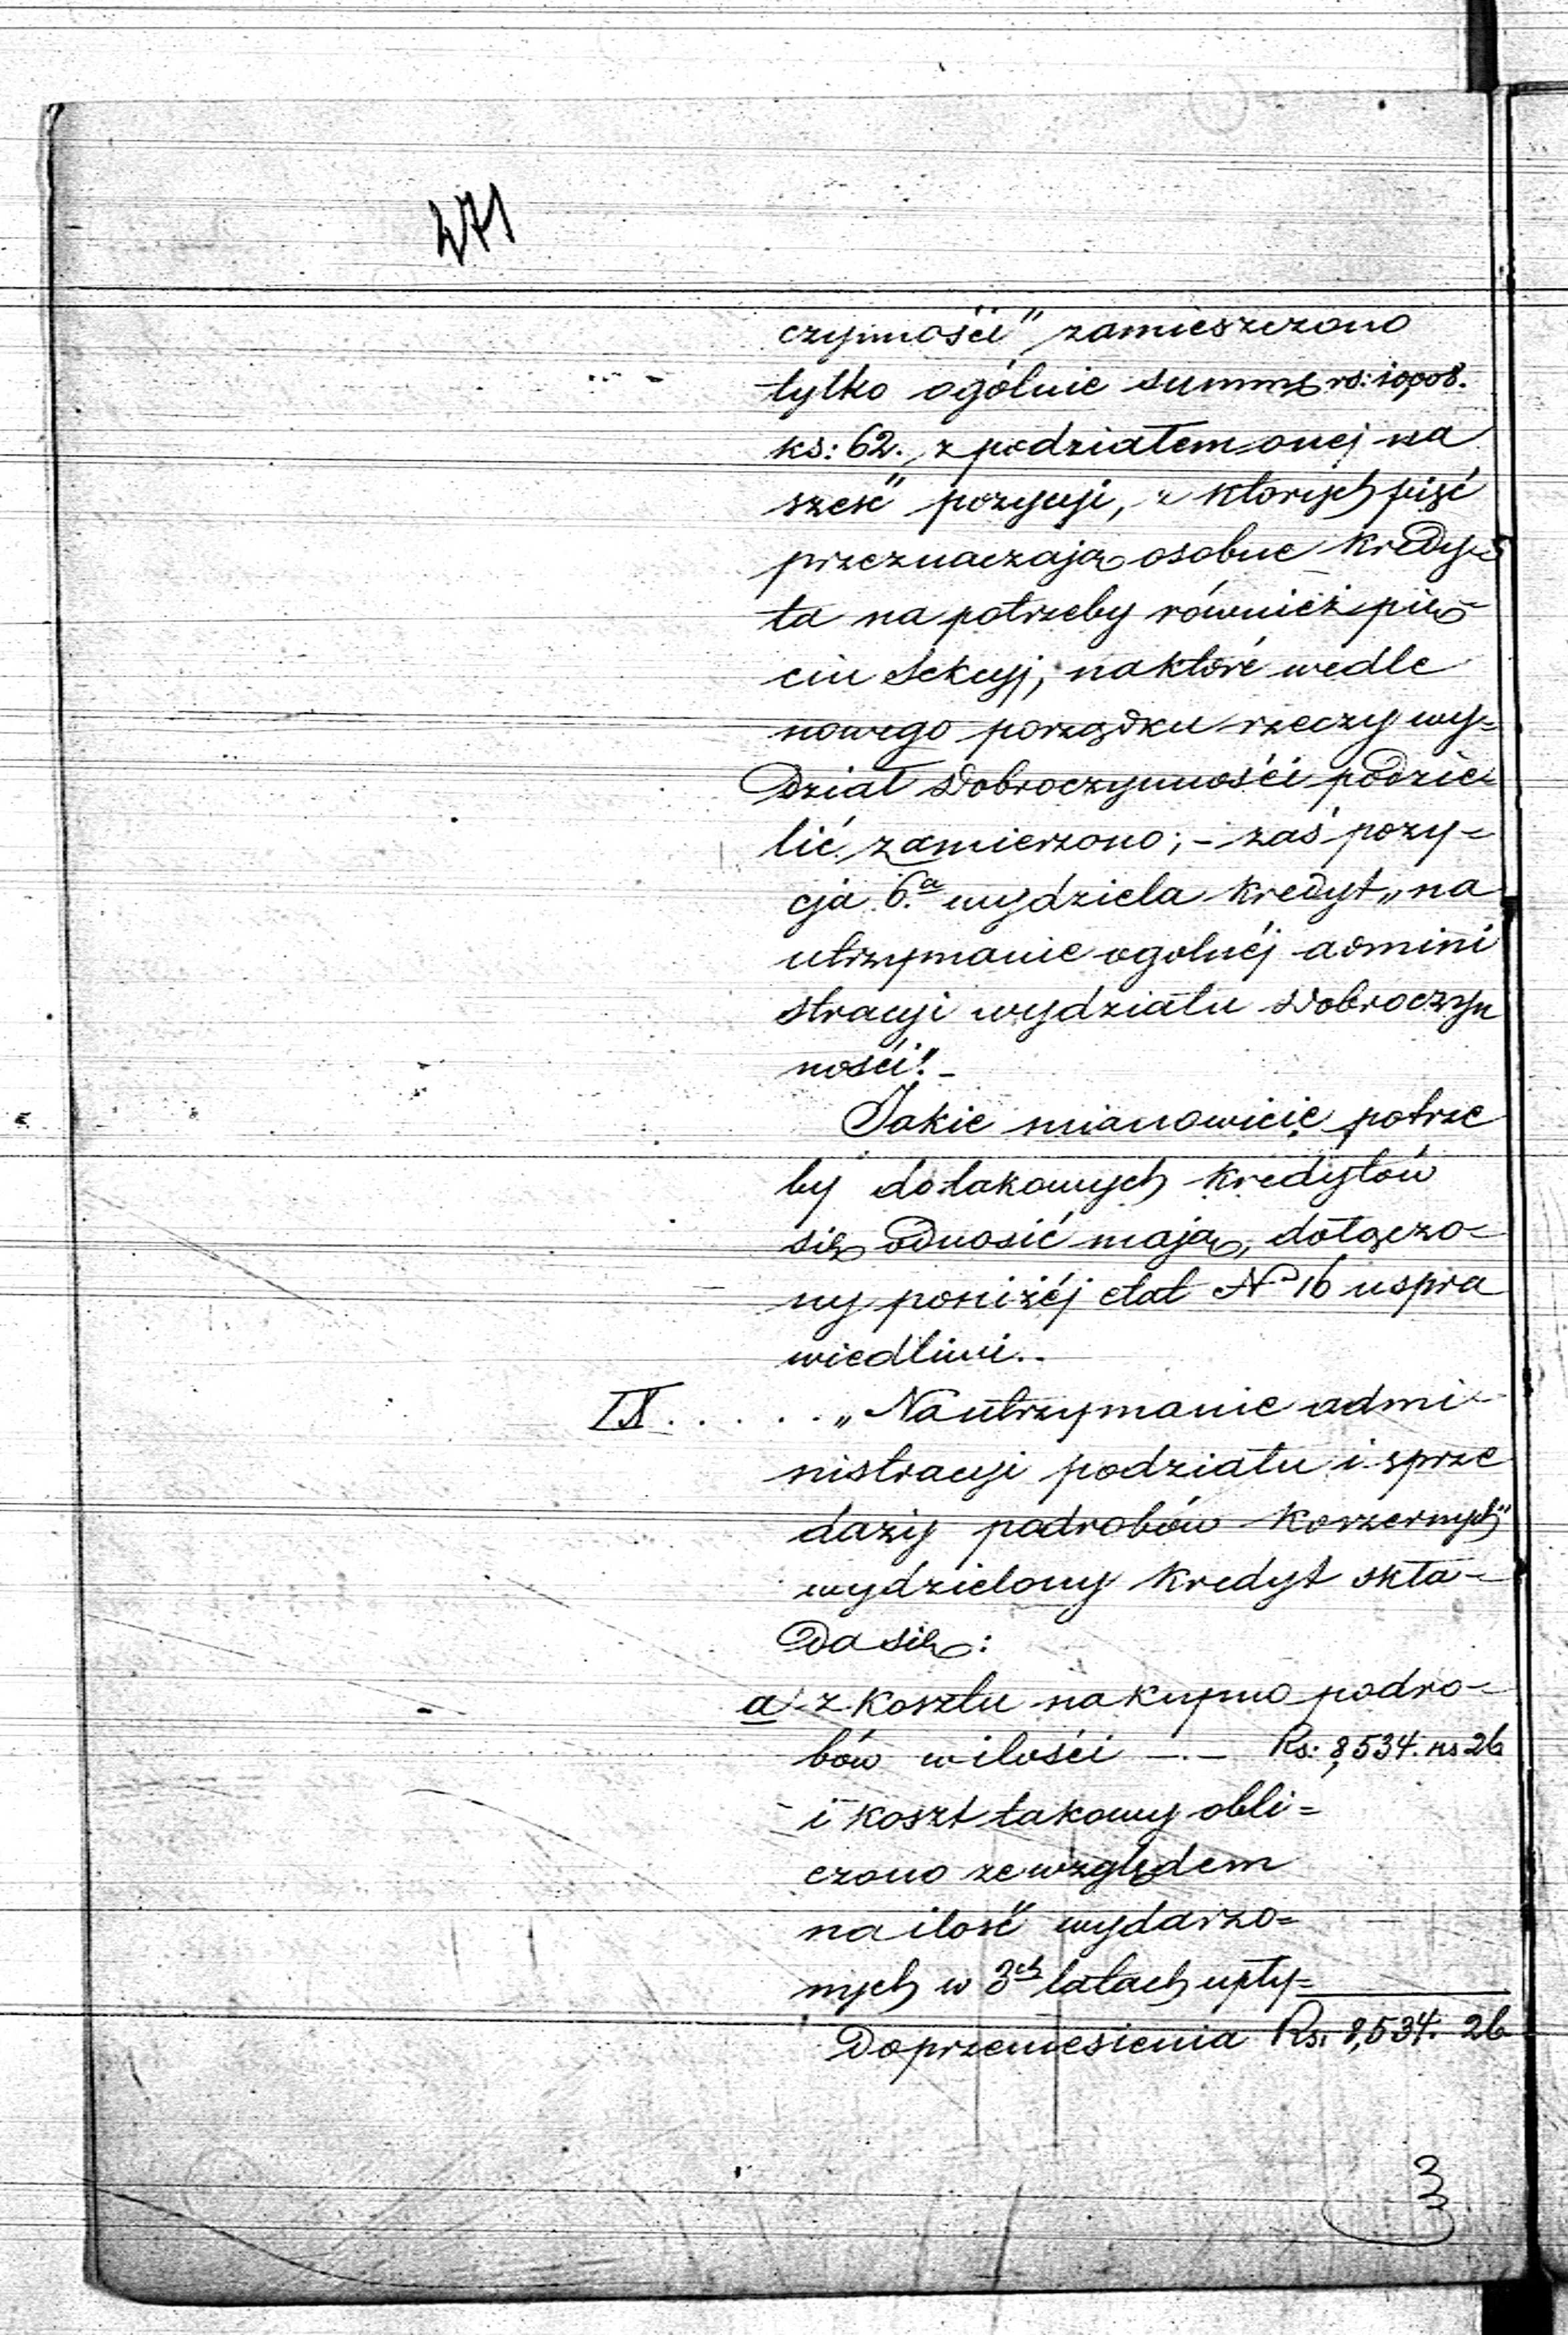 271
czynności" zamieszczono
tylko ogólnie summę rs: 10,008.
ks: 62. z podziałem onej na
sześć pozycyi, z których pięć
przeznaczają osobne kredy-
ta na potrzeby również pię-
ciu Sekcyj, na które wedle
nowego porządku rzeczy wy=
dział Dobroczynności podzie
lić zamierzono; - zaś pozy-
cja 6.a wydziela kredyt „na
utrzymanie ogolnéj admini
stracyi wydziału Dobroczyn
ności". -
Jakie mianowicie potrze
by do takowych kredytów
się odnosić mają, dołączo-
ny poniżéj etat No 16 uspra
wiedliwi..
IX. . . . . . „Na utrzymanie admi-
nistracyi podziału i sprze
daży podrobów koszernych"
wydzielony kredyt skła-
da się:
a/ z kosztu nakupno podro-
bów w ilości -.- Rs: 8,534. ks 26
i koszt takowy obli=
czono ze względem
na ilość wydarzo=
nych w 3ch latach upły=
Do przeniesienia Rs. 8,534. 26
3